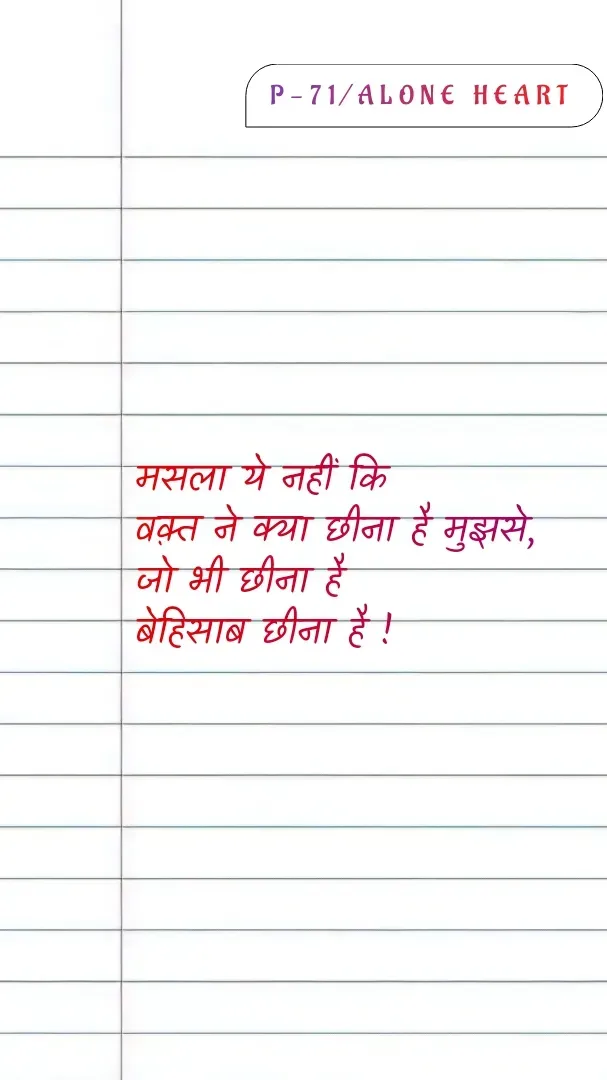 P-71/ALONE HEART
मसला ये नहीं कि
वक़्त ने क्या छीना है मुझसे,
जो भी छीना है
बेहिसाब छीना है !